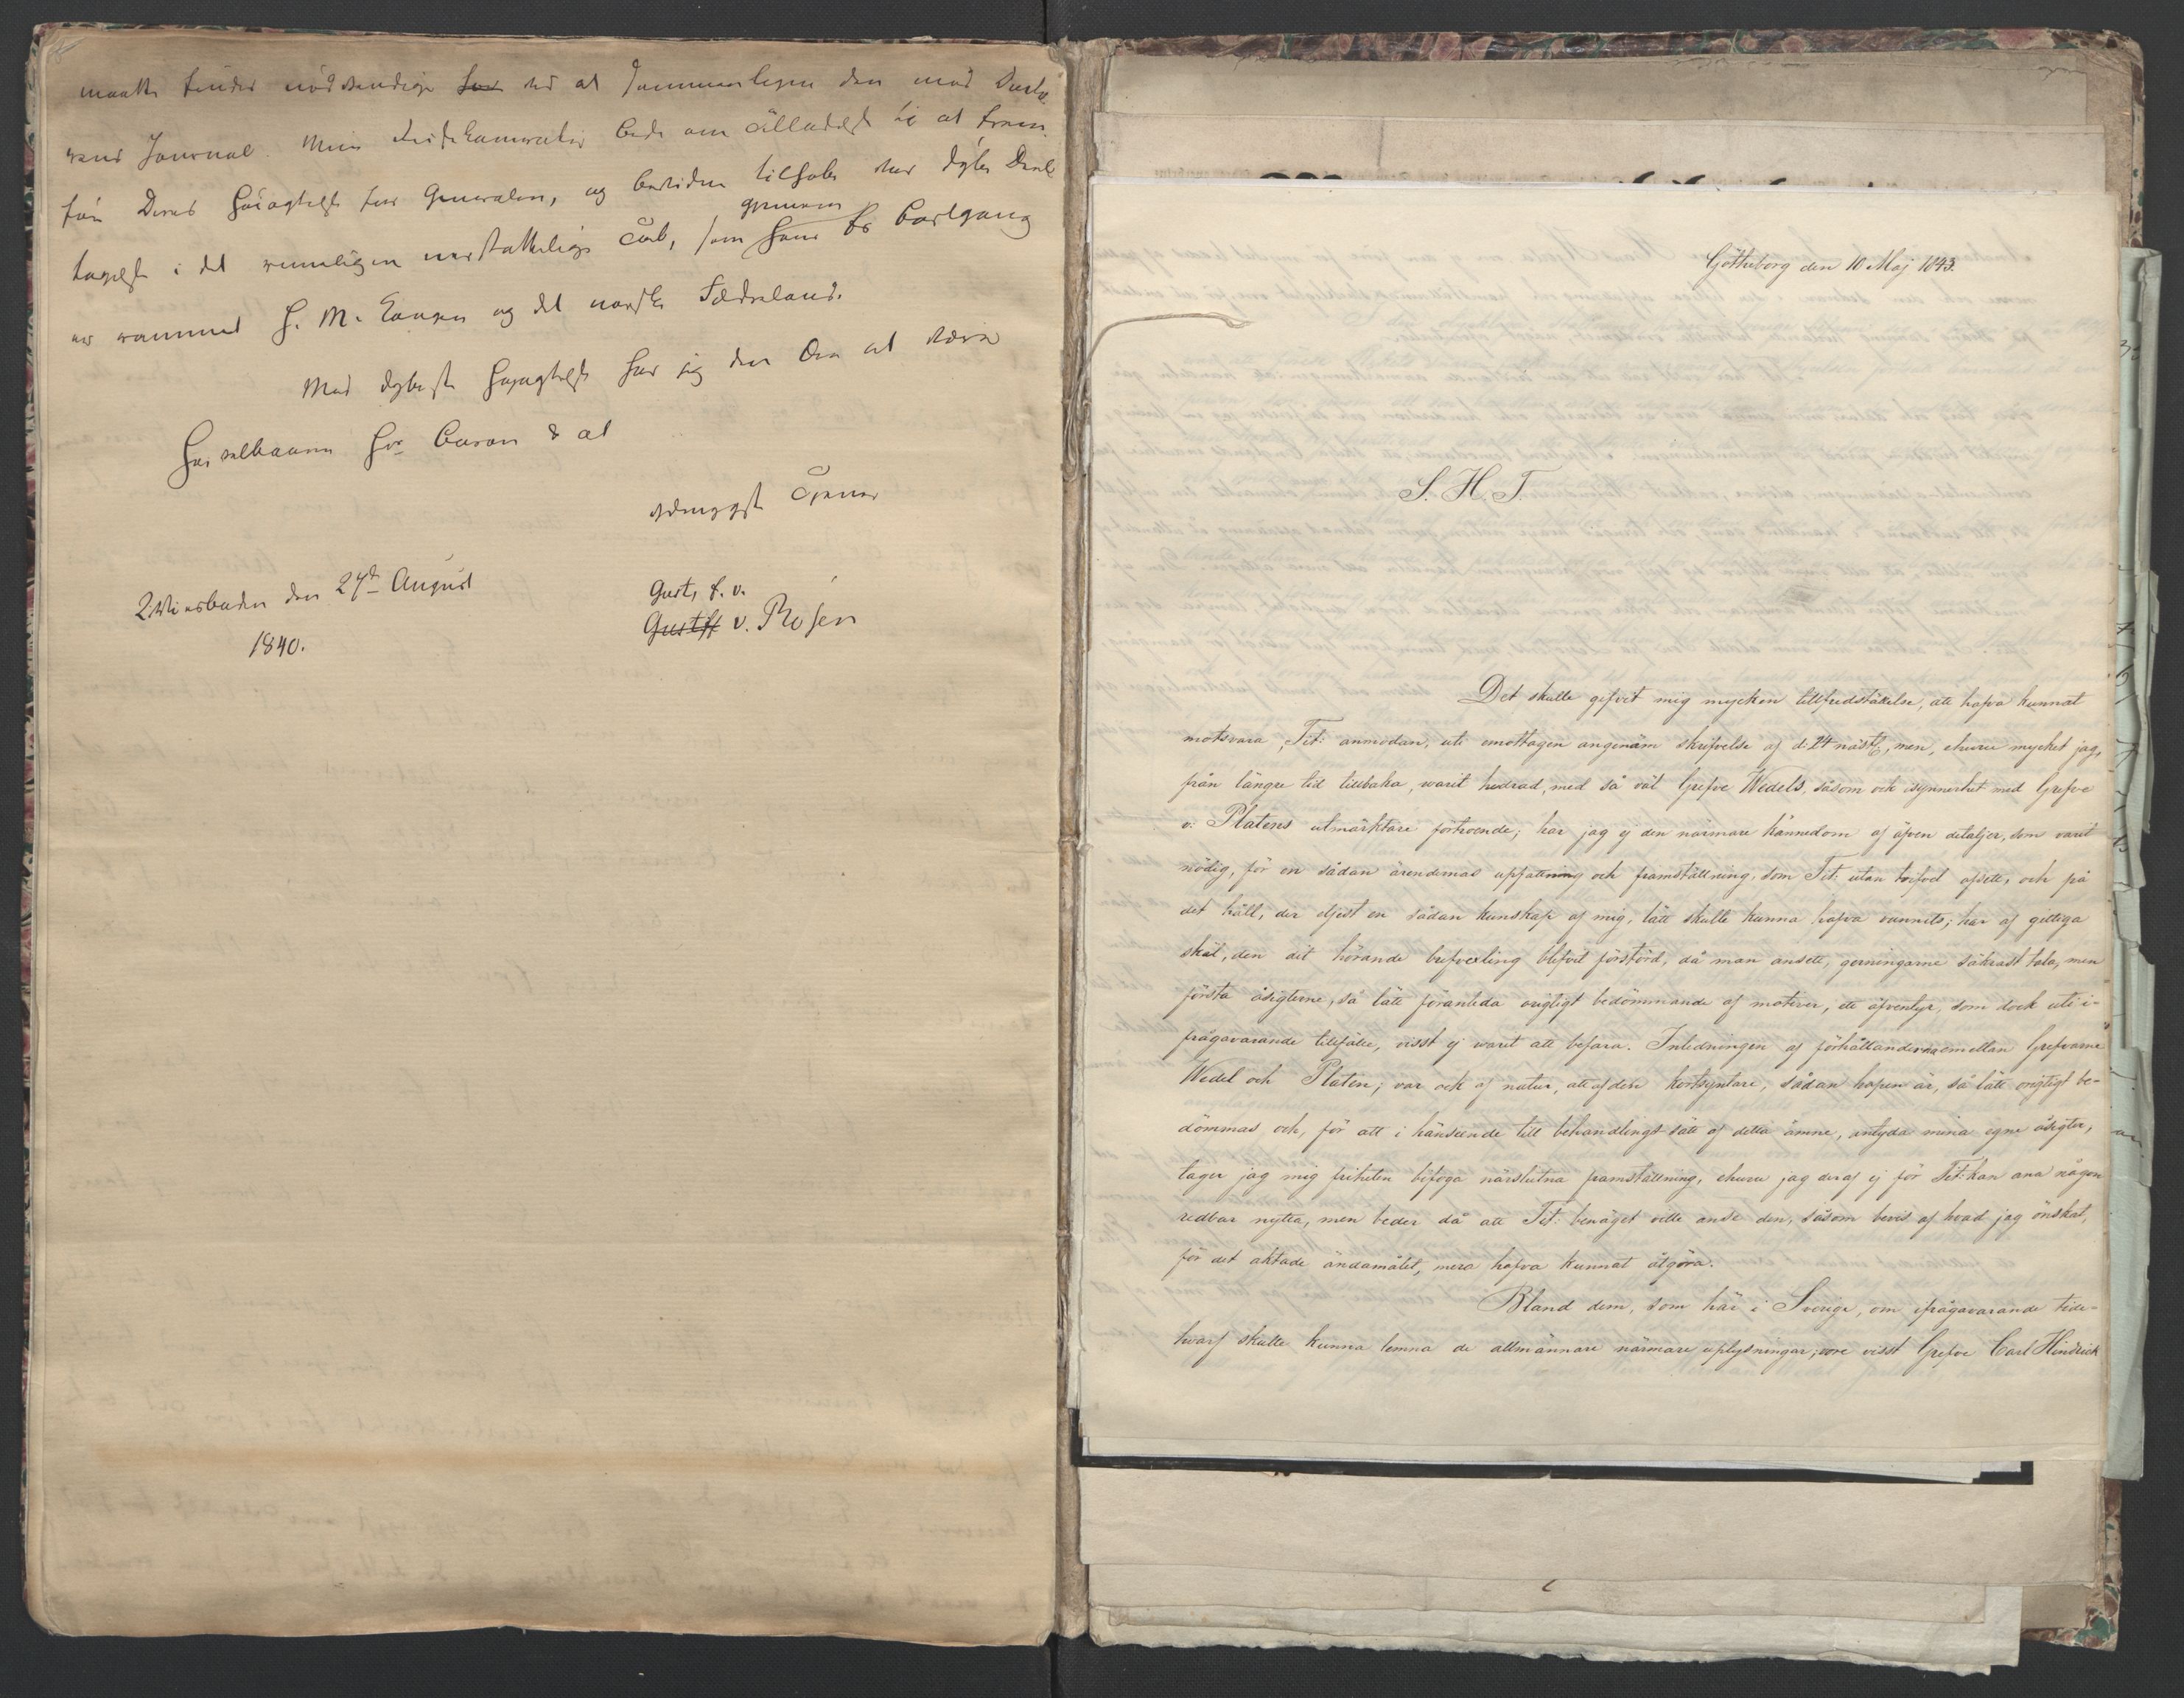 maatte findes nødvendige for ved at sammenligne den med Deres
Journal. Min beder om Tilladelse til at frem
føre Deres Høiagtelse for Generalen, og bevidne tilfulde dybe Deel
tagelse i det uerstattelige Tab, som gjennem hans Bortgang
er rammet H. M. Kongen og det norske Fædreland.
Med dybeste Høiagtelse har jeg den Ære at være
Høivelbaarne Hr Baron &
ydmygst Tjener
Wiesbaden den 27d August
1840.
Gust. f. v.
Gustff v. Rosen
Götheborg den 10 Maj 1843.
S. H. T.
Det skulle gifvit mig mycken tillfredställelse, att hafva kunnat
motsvara Tit: anmodan, uti emottagen angenäm skrifvelse af d: 24 näst, men, ehuru mycket jag,
från längre tid tillbaka, warit hedrad, med så väl Grefve Wedels, såsom och isynnerhet med Grefve
v: Platens utmärktare förtroende; har jag ej den närmare kännedom af äfven detaljer, som varit
nödig, för en sådan ärendernas uppfattning och framställning, som Tit: utan tvifvel afsett, och på
det håll, der eljest en sådan kunskap af mig, lätt skulle kunna hafva vunnits; har af giltiga
skäl, den dit hörande brefvexling blifvit förstörd, då man ansett, gerningarne säkrast tala, men
första åsigterne, så lätt föranleda origtigt bedömmande af motiver, ett äfventyr, som dock uti i-
frågavarande tillfälle, visst ej warit att befara. Inledningen af förhållanderna emellan Grefvarne
Wedel och Platen; var ock af natur, att af den kortsyntare, sådan hopen är, så lätt origtigt be-
dömmas och, för att i hänseende till behandlings sätt af detta ämne, antyda mina egne åsigter,
tager jag mig friheten bifoga närslutna framställning, ehuru jag deraf ej för Tit: kan ana någon
redbar nytta, men beder då att Tit: benäget ville anse den, såsom bevis af hvad jag önskat,
för det aktade ändamålet, mera hafva kunnat åtgöra.
Bland dem, som här i Sverige, om ifrågavarande tide-
hvarf skulle kunna lemna de allmännare närmare uplysningar; vore visst Grefve Carl Hindrick